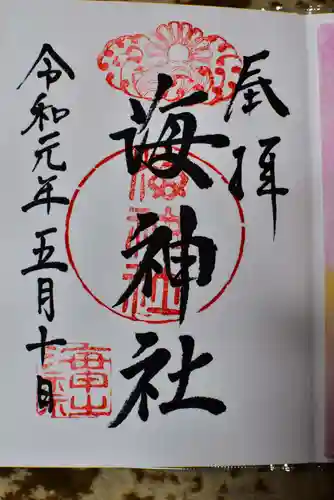 奉拝
海神社
令和元年五月十日
海神社